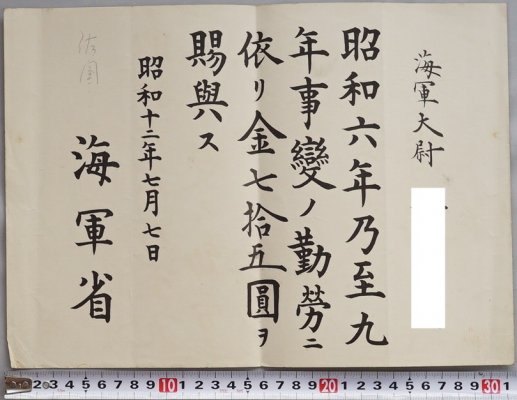 海軍大尉
昭和六年乃至九
年事變ノ勤勞ニ
依リ金七拾五圓ヲ
賜與ス
昭和十二年七月七日
海軍省
2 3 4 5 6 7 8 9 10 1 2 3 4 5 6 7 8 9 20 1 2 3 4 5 6 7 8 9 30 1